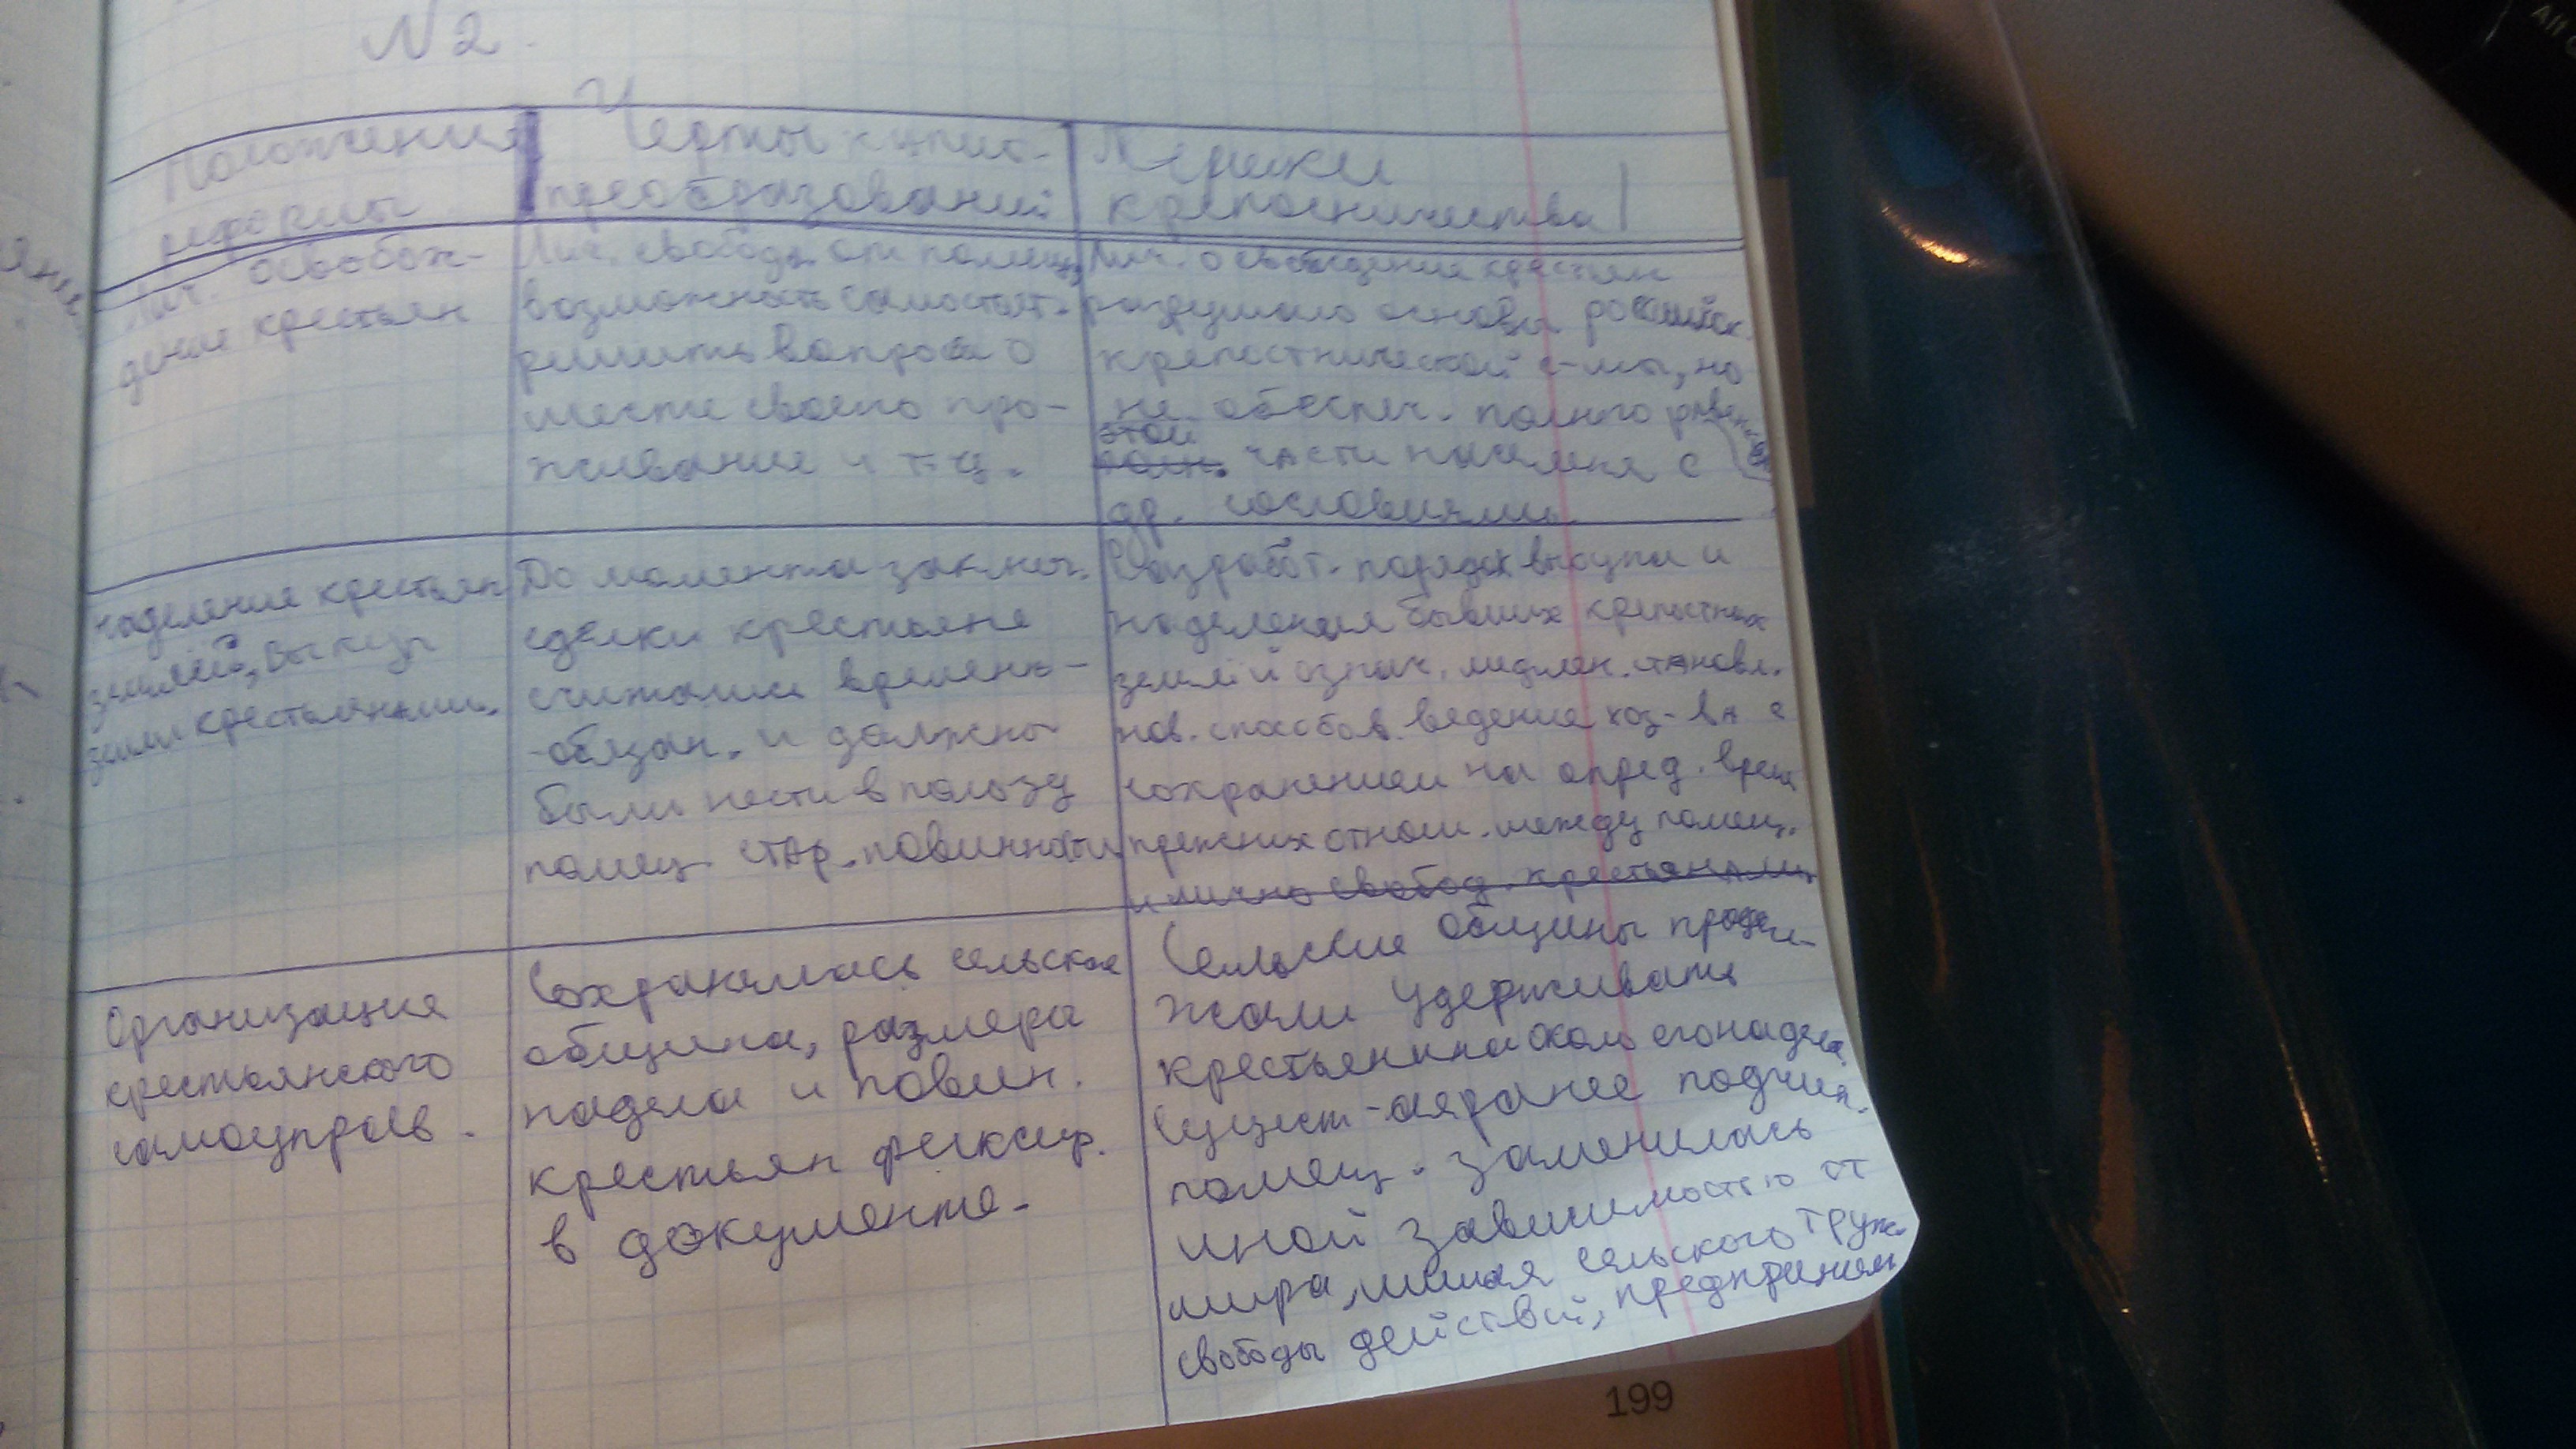 N 2.
Положения
реформы
Черты
преобразований
крепостничества
Лич. освобож-
дение крестьян
Лич. свобода от помещ,
возможность самостоят.
решить вопросы о
месте своего про-
живание и т.д.
Лич. освобождение крестьян
разрушало основы российск.
крепостнической с-мы, но
не обеспеч. полного равен-
этой
части населения с
др. сословиями
наделение крестьян
землёй, выкуп
земли крестьянами.
До момента заключ.
сделки крестьяне
считались времен-
-обязан. и должны
были нести в пользу
помещ. стар. повинности
Разработ. порядок выкупа и
наделения бывших крепостных
землей означ. медлен. становл.
нов. способов ведение хоз-ва с
сохранением на опред. время
прежних отнош. между помещ.
и лично свобод. крестьянами
Организация
крестьянского
самоуправ.
Сохранялась сельская
община, размера
надела и повин.
крестьян фиксир.
в документе.
Сельские общины продол-
жали удерживать
крестьянина около его надела.
Сущест-ая ранее подчин.
помещ. заменилась
иной зависимостью от
мира, лишая сельского труж.
свободы действий, предприним
199